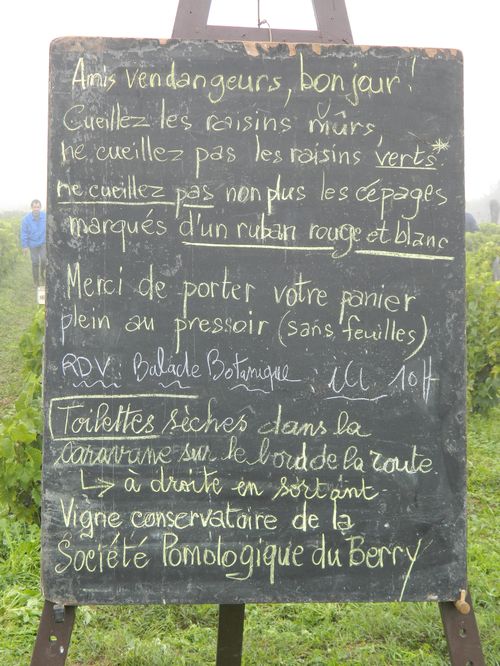 Amis vendangeurs, bonjour!
Cueillez les raisins mûrs,
ne cueillez pas les raisins verts*
ne cueillez pas non plus les cépages
marqués d'un ruban rouge et blanc
Merci de porter votre panier
plein au pressoir (sans feuilles)
RDV Balade Botanique ICI 10H
Toilettes sèches dans la
caravane sur le bord de la route
↳ à droite en sortant
Vigne conservatoire de la
Société Pomologique du Berry